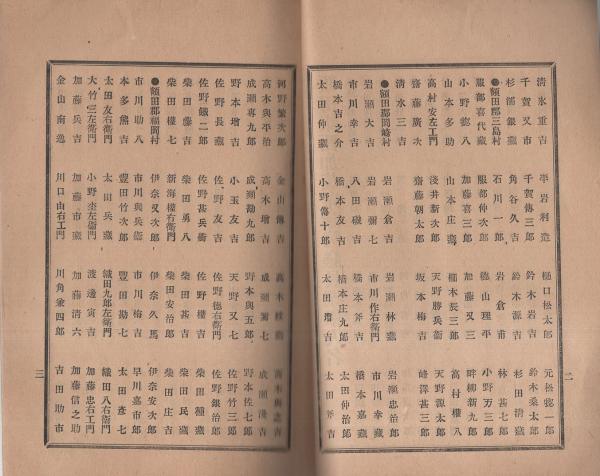 清水重吉 平岩利造 樋口松太郎 元松寵一郎
千賀又市 千賀傳三郎 鈴木岩吉 鈴木桑太郎
杉浦銀藏 角谷久吉 鈴木源吉 杉田清藏
●額田郡三島村 石川一郎 岩倉甫 林甚七郎
服部喜代藏 服部仲次郎 德山理平 小野万三郎
小野德八 加藤喜三郎 加藤又三 畔柳新九郎
山本多助 山本庄藏 楠木辰三郎 高村權八
高村安左工門 淺井新次郎 天野勝兵衞 天野源太郎
齋藤廣次 齋藤朝太郎 坂本梅吉 峰澤甚三郎
清水三吉
●額田郡岡崎村
岩瀨大吉 岩瀨倉吉 岩瀨林藏 岩瀨忠治郎
市川幸吉 岩瀨彌七 市川作右衞門 市川幸藏
橋本吉之介 八田磯吉 橋本斧吉 橋本嘉藏
太田仲藏 橋本友吉 橋本庄九郎 太田仲治郎
小野傳十郎 太田增吉 太田斧吉
二
河野繁次郎 金山傳吉 高木枝藏 高木與吉
高木與平治 高木增吉 成瀨彌七 成瀨淺吉
成瀨專九郎 成瀨勘九郎 野本與五郎 野本佐七郎
野本增吉 小玉友吉 天野又七 佐野竹三郎
佐野長藏 佐野友吉 佐野德右衞門 佐野銀治郎
佐野銀二郎 佐野甚兵衞 佐野權吉 柴田種藏
柴田藤吉 柴田勇八 柴田甚吉 柴田民藏
柴田權七 新海權右衞門 柴田安治郎 柴田庄吉
●額田郡福岡村 伊奈又次郎 伊奈久馬 伊奈安次郎
市川助八 市川與兵衞 市川梅吉 早川嘉市郎
本多熊吉 豊田竹次郎 豊田勘七 太田彥七
太田友右衞門 太田兵藏 織田九郎左衞門 織田八右衞門
大竹三左衞門 小野杢左衞門 渡邊寅吉 加藤忠右工門
加藤兵吉 加藤市藏 加藤清六 加藤信之助
金山南逸 川口由右工門 川角兼四郎 吉田助市
三